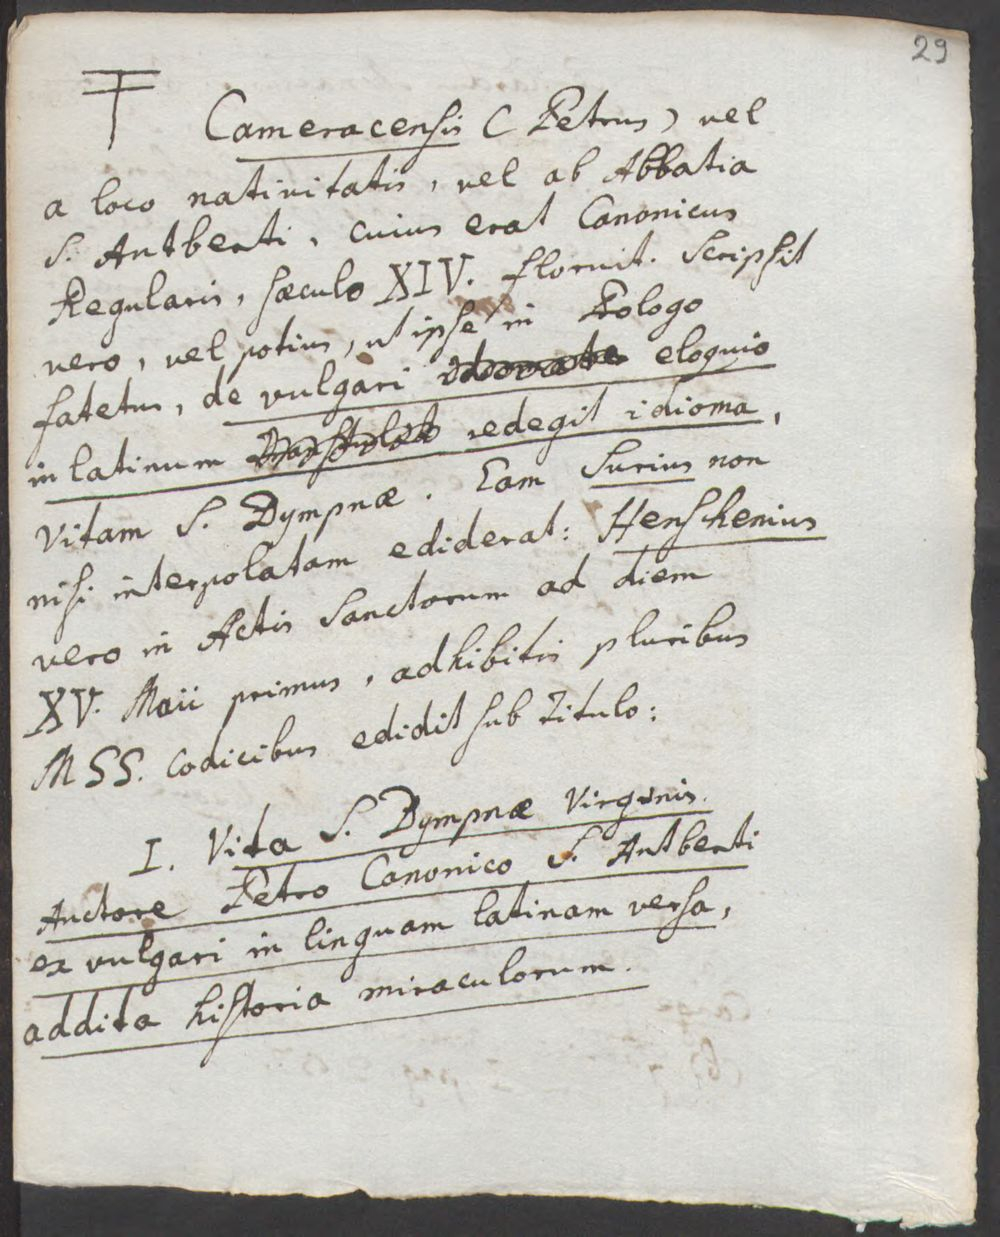 29
Cameracensis (Petrus) vel
a loco nativitatis, vel ab Abbatia
S. Autberti, cuius erat Canonicus
Regularis, sæculo XIV. floruit. Scripsit
vero, vel potius, ut ipse in Prologo
fatetur, de vulgari eloquio
in latinum redegit idioma,
vitam S. Dympnæ. Eam Surius non
nisi interpolatam ediderat: Henschenius
vero in Actis Sanctorum ad diem
XV. Maii primus, adhibitis pluribus
MSS. codicibus edidit sub titulo:
I. Vita S. Dympnæ Virginis.
Auctore Petro Canonico S. Autberti
ex vulgari in linguam latinam versa,
addita historia miraculorum.